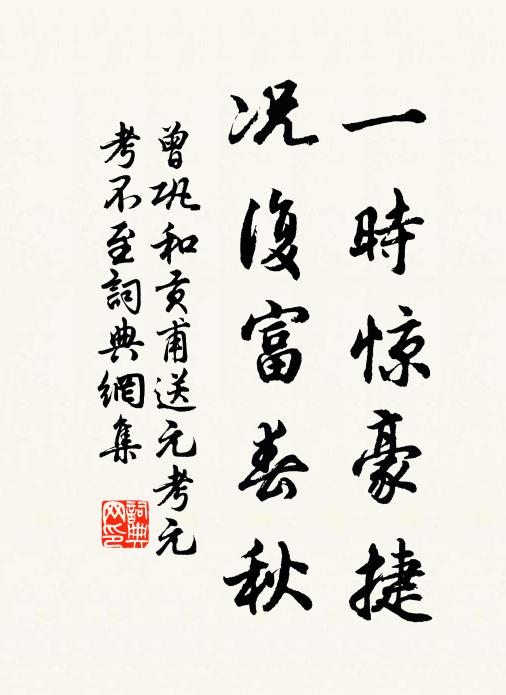 一時惊豪捷
况復富春秋
曾巩和贡甫送元考元
考不至詞典網集
詞典
网印